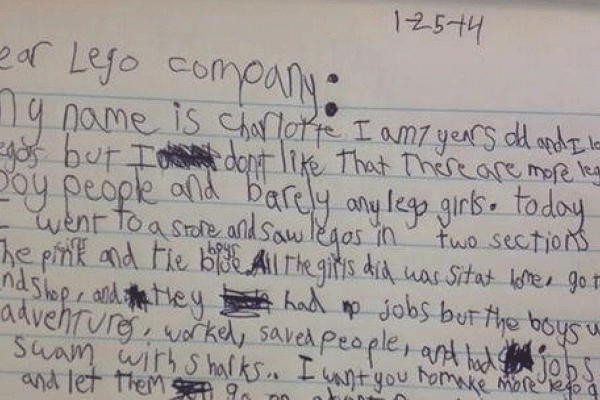 1-25-14
ear Lego company:
My name is Charlotte I am 7 years old and I lo
egos but I dont like that there are more leg
boy people and barely any lego girls. today
I went to a store and saw legos in two sections
he pink girls and the blue boys. All the girls did was sit at home, go t
nd shop, and they had no jobs but the boys w
adventures, worked, saved people, and had jobs
swam with sharks.. I want you to make more lego g
and let them go on